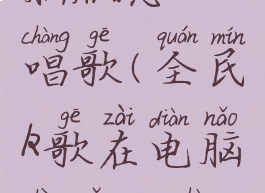 chàng gē quán mín
唱歌(全民
gē zài diàn nǎo
K歌在电脑